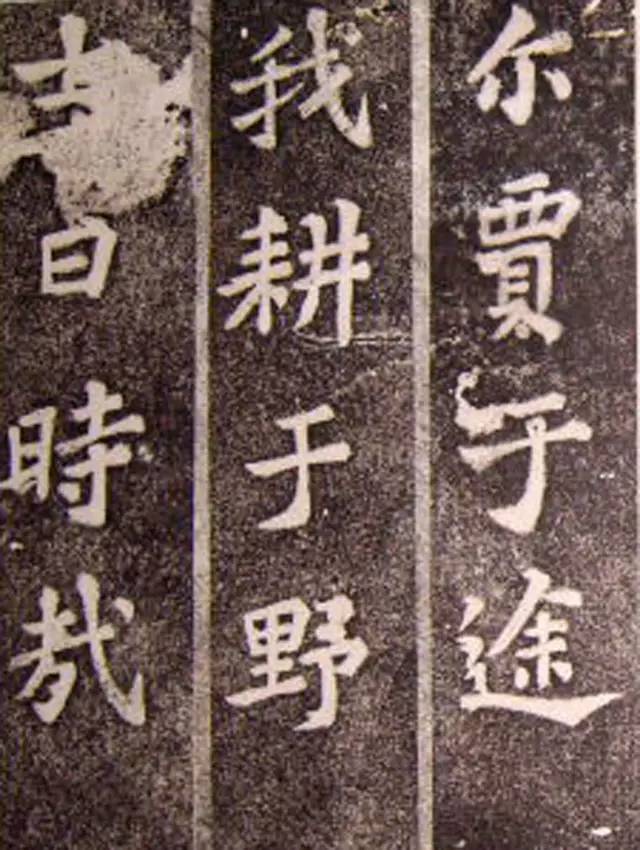 尔賈于途
我耕于野
士曰時哉